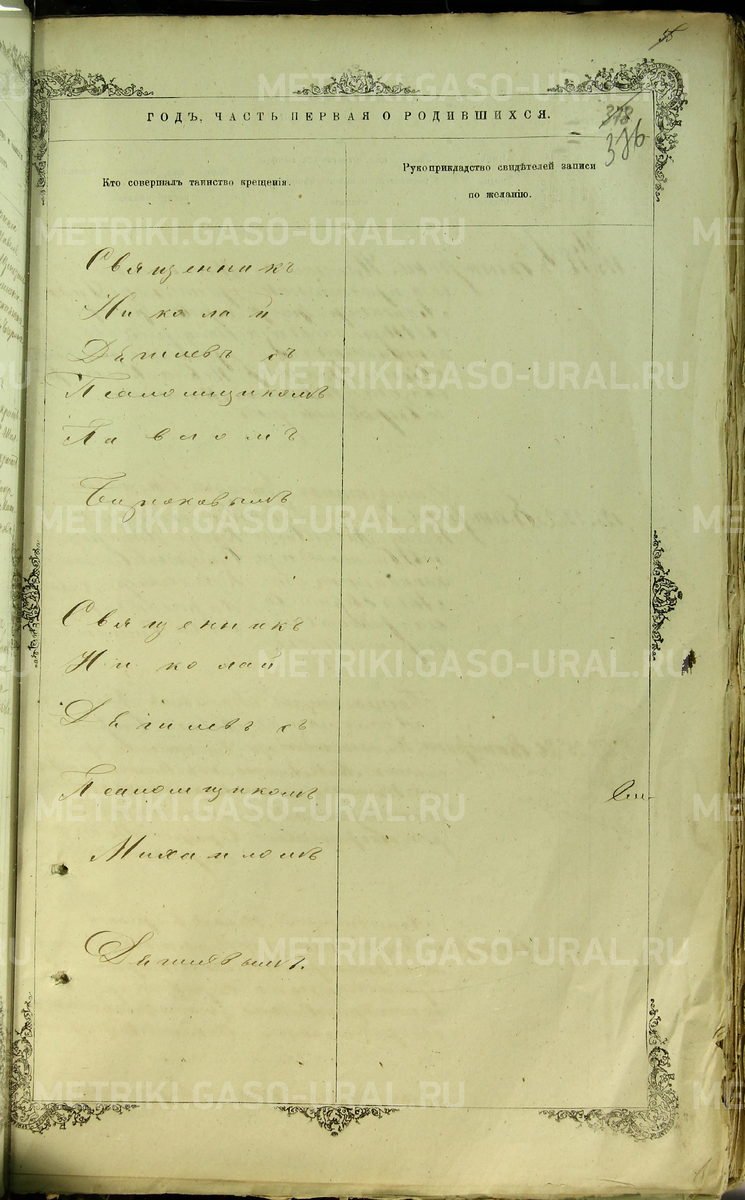 ГОДЪ, ЧАСТЬ ПЕРВАЯ О РОДИВШИХСЯ.
378
386
Кто совершалъ таинство крещенія.
Рукоприкладство свидѣтелей записи
по желанію.
Священникъ
Николай
Дягилевъ съ
Псаломщикомъ
Павломъ
Бирюковымъ
Священникъ
Николай
Дягилевъ съ
Псаломщикомъ
Михаиломъ
Дягилевымъ.
METRIKI.GASO-URAL.RU